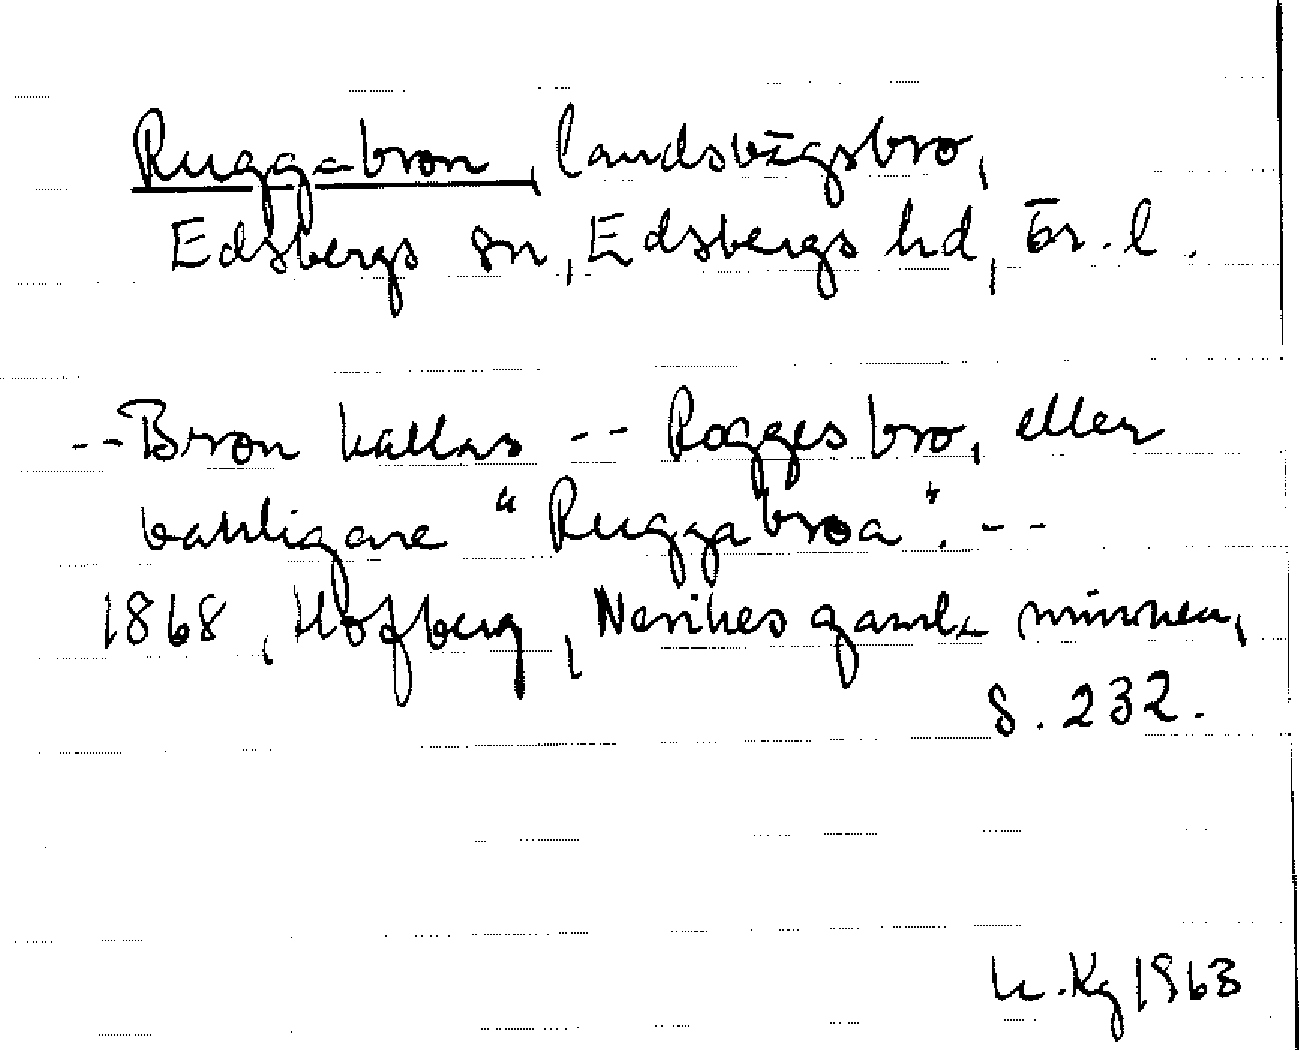 Ruggabron, landsvägsbro,
Edsbergs sn, Edsbergs hd, Ör. l.
-- Bron kallas -- Rogges bro, eller
vanligare "Ruggabroa". --
1868, Hofberg, Nerikes gamla minnen,
s. 232.
Kg 1963